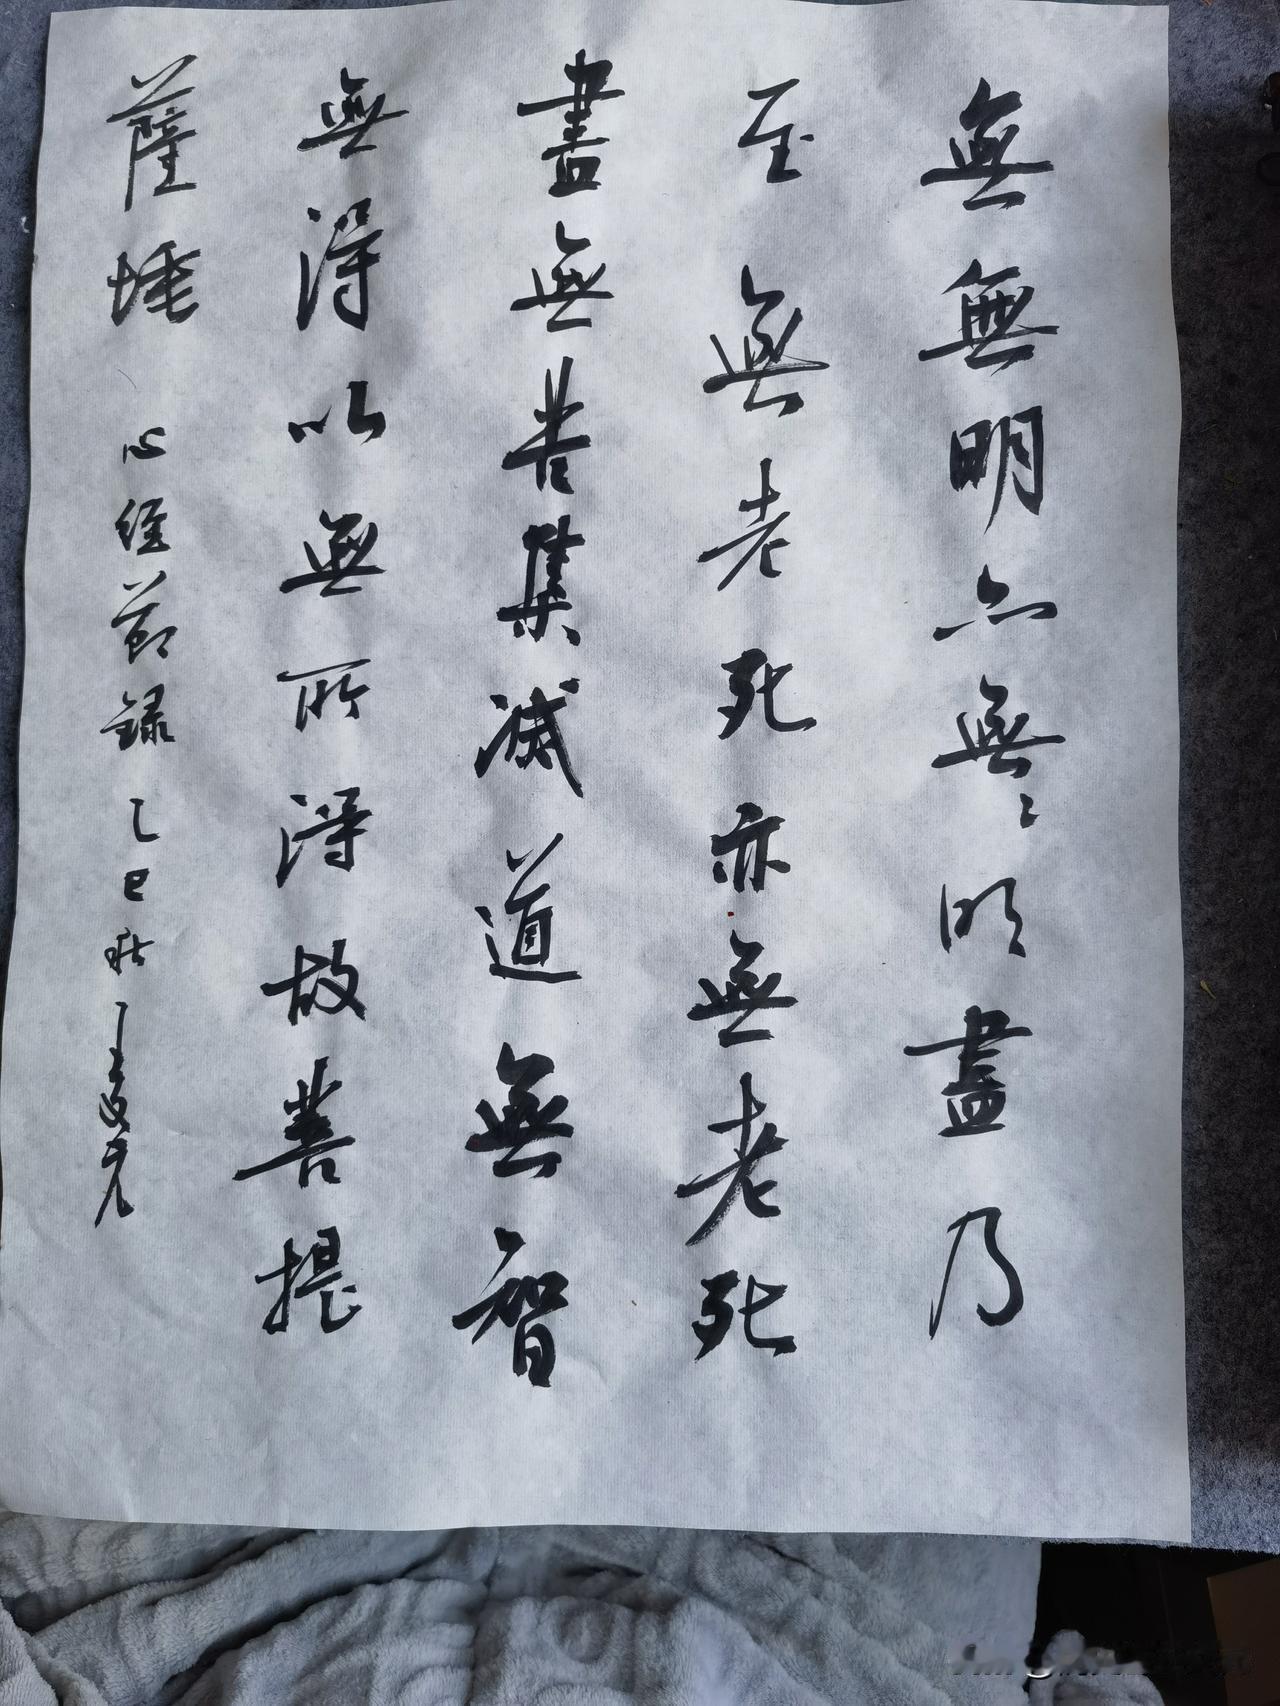 無無明亦無〻明盡乃
至無老死亦無老死
盡無苦集滅道無智
無得以無所得故菩提
薩埵 心經節錄 乙巳秋